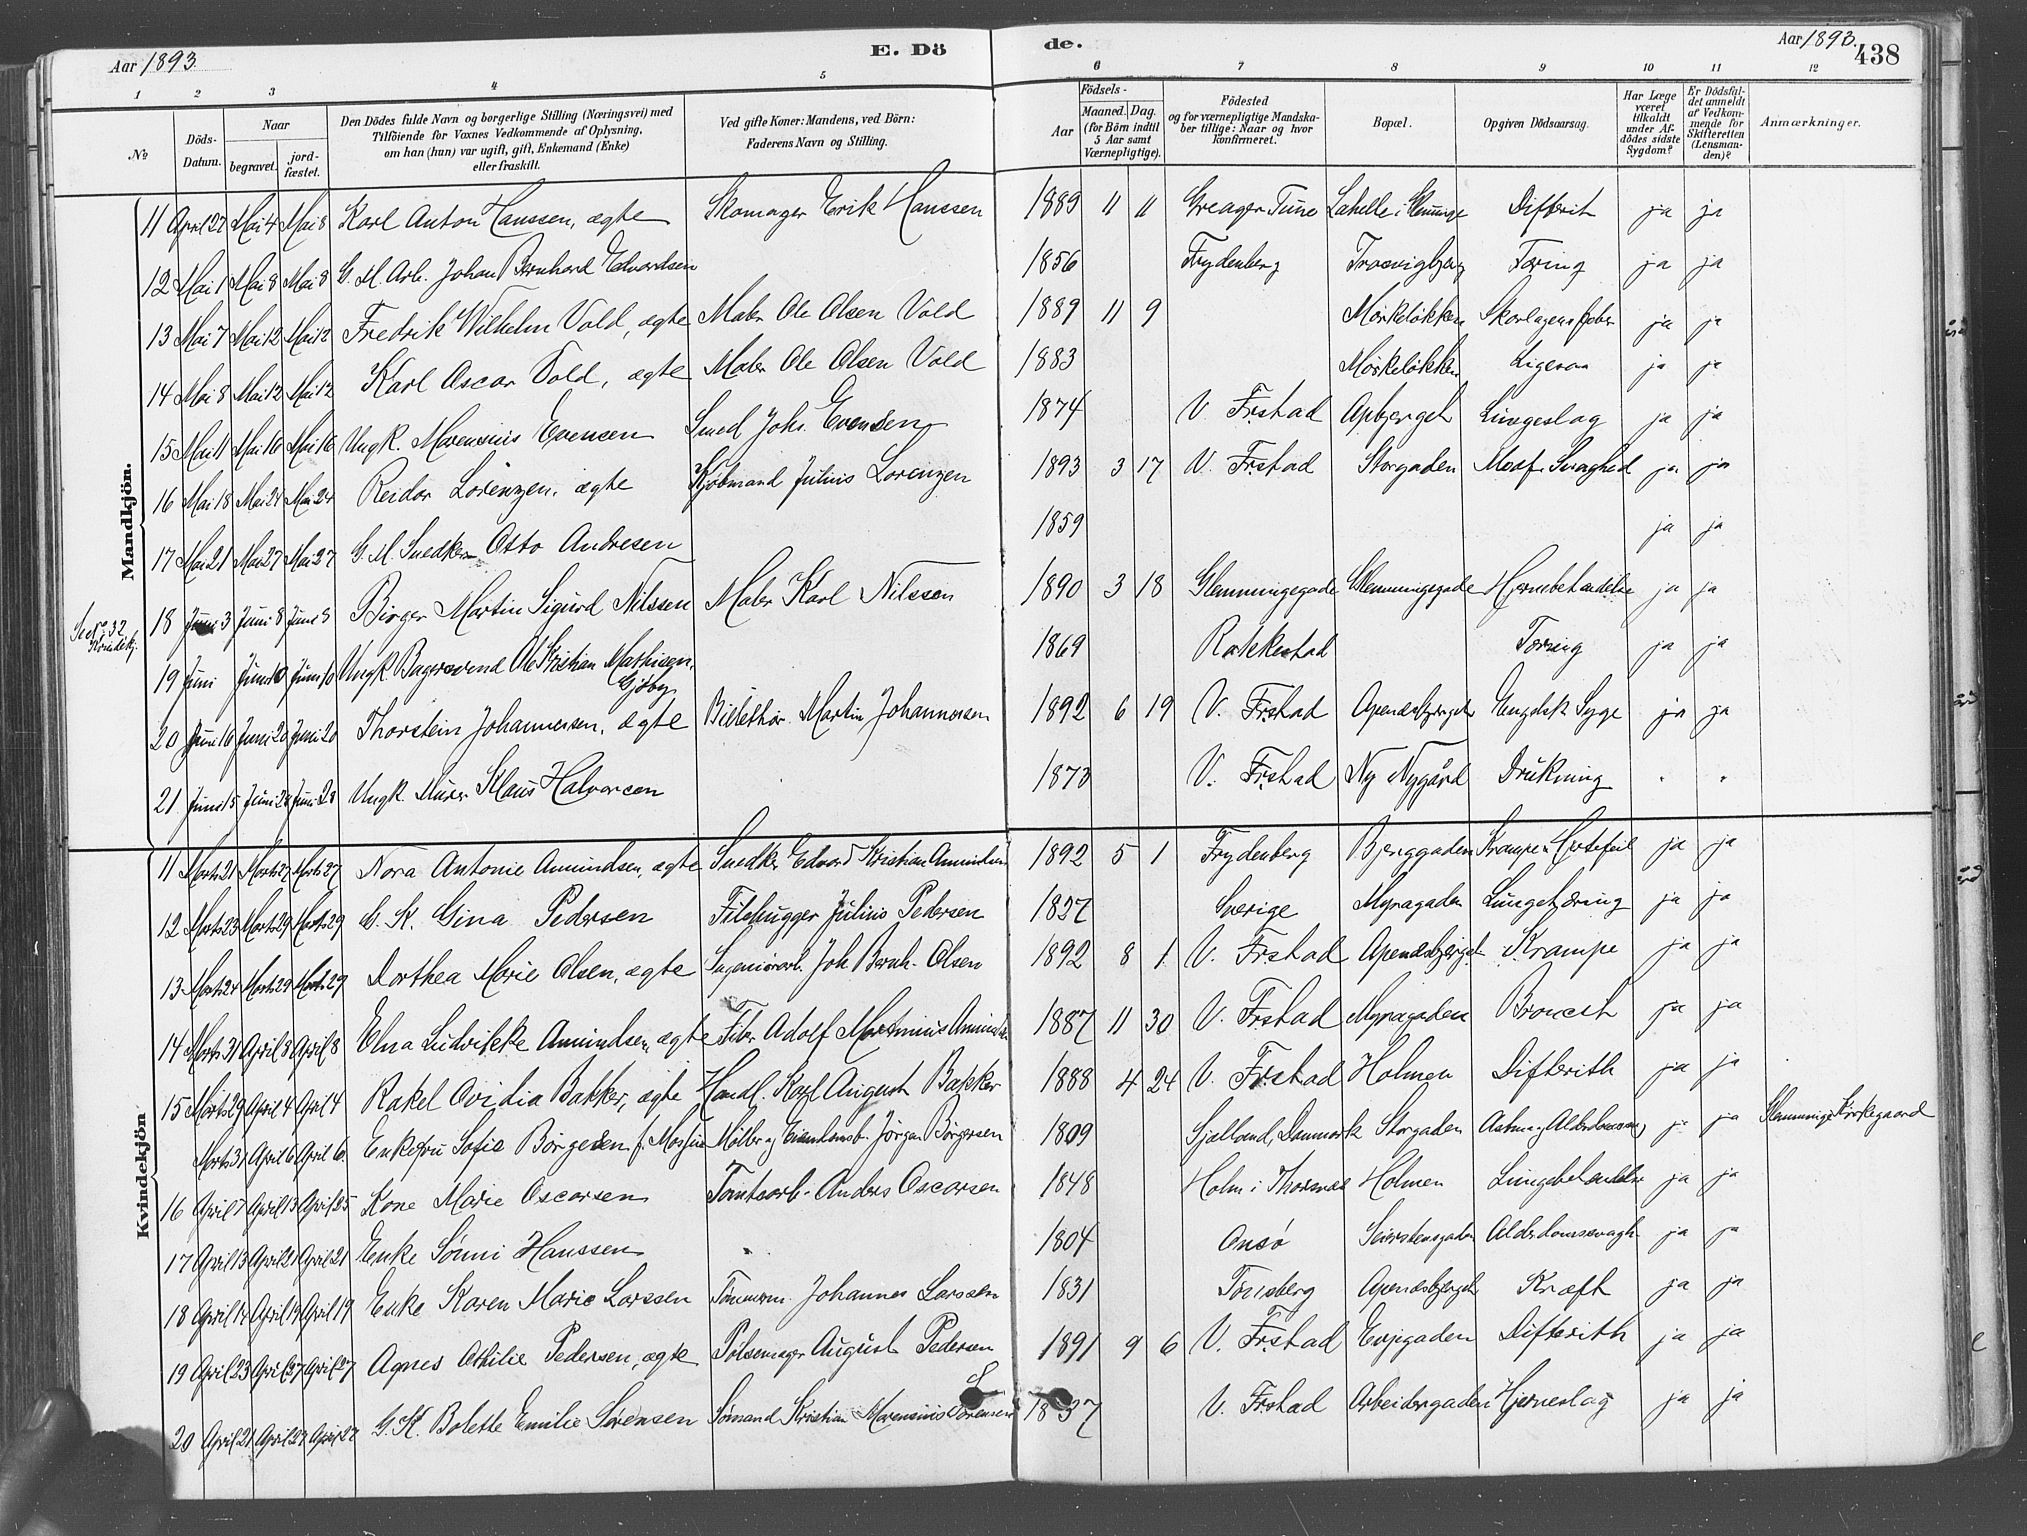 Aar 1893.
E. Dö de.
Aar 1893.
438
1 2 3 4 5 6 7 8 9 10 11 12
No
Döds-Datum.
Naar
begravet.
jord-fæstet.
Den Dödes fulde Navn og borgerlige Stilling (Næringsvei) med
Tilföiende for Voxnes Vedkommende af Oplysning,
om han (hun) var ugift, gift, Enkemand (Enke)
eller fraskilt.
Ved gifte Koner: Mandens, ved Börn:
Faderens Navn og Stilling.
Födsels-
Aar
Maaned. Dag.
(for Börn indtil
5 Aar samt
Værnepligtige).
Födested
og for værnepligtige Mandska-
ber tillige: Naar og hvor
konfirmeret.
Bopæl.
Opgiven Dödsaarsag.
Har Læge
været
tilkaldt
under Af-
dödes sidste
Sygdom?
Er Dödsfal-
det anmeldt
af Vedkom-
mende for
Skifteretten
(Lensman-
den)?
Anmærkninger.
Mandkjön.
11 April 27 Mai 4 Mai 8 Karl Anton Hanssen, ægte Skomager Erik Hanssen 1889 11 11 Greager Tune Lahelle i Glemminge Difterit ja ja
12 Mai 1 Mai 8 Mai 8 G. M. Arb. Johan Bernhard Edvardsen 1856 Frydenberg Trosvigbjerg Tæring ja ja
13 Mai 7 Mai 12 Mai 12 Fredrik Wilhelm Vold, ægte Maler Ole Olsen Vold 1889 11 9 Mørkeløkken Skarlagensfeber ja ja
14 Mai 8 Mai 12 Mai 12 Karl Oscar Vold, ægte Maler Ole Olsen Vold 1883 Mørkeløkken Ligesaa ja ja
15 Mai 11 Mai 16 Mai 16 Ungk. Marensius Evensen Smed Johs. Evensen 1874 V. Frstad Apbjerget Lungeslag ja ja
16 Mai 18 Mai 24 Mai 24 Reidar Lorenzen, ægte Kjøbmand Julius Lorenzen 1893 3 17 V. Frstad Storgaden Medf. Svaghed ja ja
17 Mai 21 Mai 27 Mai 27 G. M. Snedker Otto Andresen 1859 ja ja
Se No. 32 Kvindekj.
18 Juni 3 Juni 8 Juni 8 Birger Martin Sigurd Nilssen Maler Karl Nilssen 1890 3 18 Glemmingegade Glemmingegade Hjernebetændelse ja ja
19 Juni Juni 10 Juni 10 Ungk. Bagersvend Ole Kristian Mathisen Gjøby 1869 Rakkestad Tæring ja ja
20 Juni 16 Juni 20 Juni 20 Thorstein Johannessen, ægte Billethør. Martin Johannessen 1892 6 19 V. Frstad Apenæsbjerget Engelsk Syge ja ja
21 Juni 15 Juni 28 Juni 28 Ungk. Murer Klaus Halvorsen 1873 V. Frstad Ny Nygård Drukning " "
Kvindekjön
11 Marts 21 Marts 27 Marts 27 Nora Antonie Amundsen, ægte Snedker Edvard Kristian Amundsen 1892 5 1 Frydenberg Bjerggaden Krampe Hjertefeil ja ja
12 Marts 23 Marts 29 Marts 29 G. K. Gina Pedersen Filehugger Julius Pedersen 1827 Sverige Myragaden Lungetæring ja ja
13 Marts 24 Marts 29 Marts 29 Dorthea Marie Olsen, ægte Sageriarb. Joh Bernh. Olsen 1892 8 1 V. Frstad Apenæsbjerget Krampe ja ja
14 Marts 31 April 8 April 8 Elna Ludvikke Amundsen ægte Fibr. Adolf Martinius Amundsen 1887 11 30 V. Frstad Myragaden Broncht ja ja
15 Marts 29 April 4 April 4 Rakel Ovidia Bakker, ægte Handl. Karl August Bakker 1888 4 24 V. Frstad Holmen Difterith ja ja
Marts 31 April 6 April 6 Enkefru Sofie Börgesen f. Mosfin Möller og Eiendomsb. Jörgen Börgesen 1809 Sjælland, Danmark Storgaden Astma, Alderdomssv. ja ja Glemminge Kirkegaard
16 April 7 April 13 April 25 Kone Marie Oscarsen Tomtearb. Anders Oscarsen 1848 Holm i Thorsnæs Holmen Lungebetændelse ja ja
17 April 13 April 21 April 21 Enke Sönni Hanssen 1804 Onsö Seierstensgaden Alderdomssvagh. ja ja
18 April 14 April 19 April 19 Enke Karen Marie Larssen Tömmerm. Johannes Larssen 1831 Tönsberg Apenæsbjerget Kræft ja ja
19 April 23 April 27 April 27 Agnes Othilie Pedersen, ægte Pölsemager August Pedersen 1891 9 6 V. Frstad Evjegaden Difterith ja ja
20 April 21 April 27 April 27 G. K. Bolette Emilie Sörensen Sömand Kristian Marensius Sörensen 1837 V. Frstad Arbeidergaden Hjerneslag ja ja